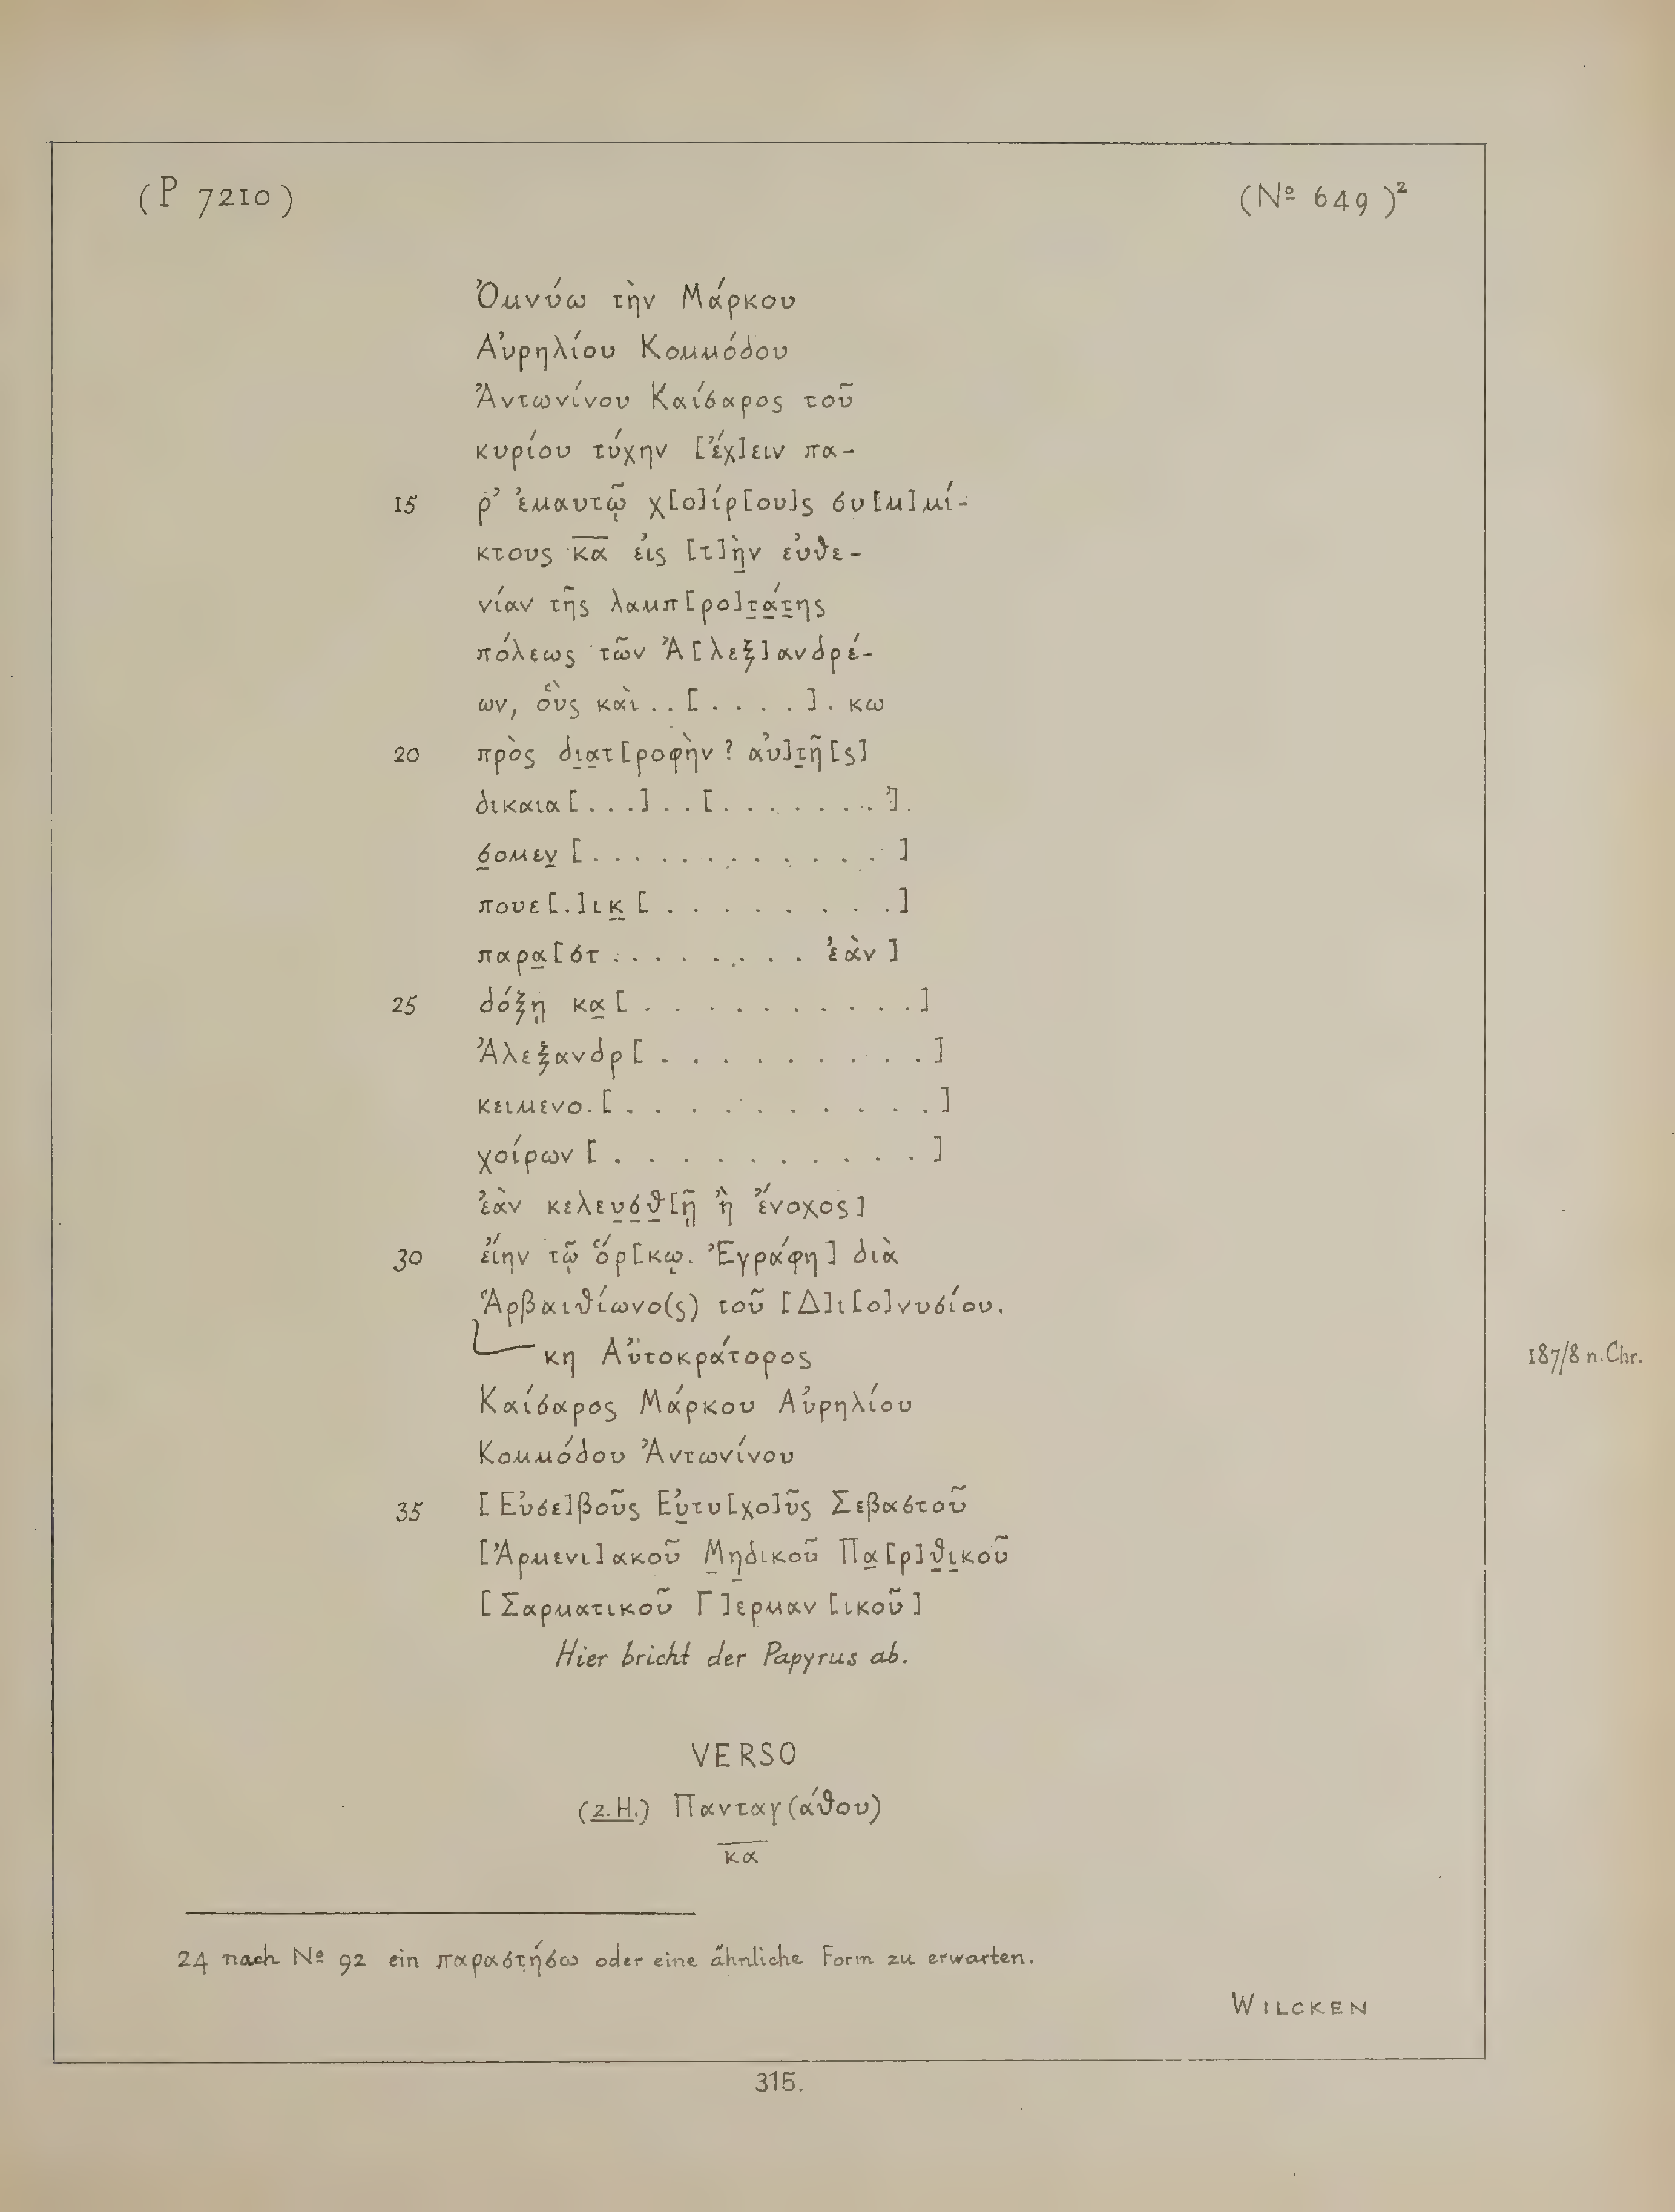 (P 7210)
(Nº 649)²
Ὀμνύω τὴν Μάρκου
Αὐρηλίου Κομμόδου
Ἀντωνίνου Καίσαρος τοῦ
κυρίου τύχην [ἔχ]ειν πα-
15 ρ' ἐμαυτῷ χ[ο]ίρ[ου]ς συ[μ]μί-
κτους κ̅α̅ εἰς [τ]ὴ̣ν εὐθε-
νίαν τῆς λαμπ[ρο]τ̣ά̣τ̣ης
πόλεως τῶν Ἀ[λεξ]ανδρέ-
ων, οὓς καὶ . . [ . . . . ] . κω
20 πρὸς δι̣α̣τ[ροφὴν ? αὐ]τ̣ῆ[ς]
δικαια[ . . . ] . . [ . . . . . . . ] .
σ̣ομεν̣ [ . . . . . . . . . . . . . ]
πουε[.]ικ̣ [ . . . . . . . . . ]
παρα̣[στ . . . . . . . . . ἐὰν ]
25 δόξῃ κα̣ [ . . . . . . . . . . . ]
Ἀλεξανδρ[ . . . . . . . . . . ]
κειμενο . [ . . . . . . . . . . . ]
χοίρων [ . . . . . . . . . . ]
ἐὰν κελευ̣σ̣θ̣[ῇ ἢ ἔνοχος]
30 εἴην τῷ ὅρ[κῳ. Ἐγράφη] διὰ
Ἁρβαιθίωνο(ς) τοῦ [Δ]ι[ο]νυσίου.
κη Αὐτοκράτορος
187/8 n. Chr.
Καίσαρος Μάρκου Αὐρηλίου
Κομμόδου Ἀντωνίνου
35 [Εὐσε]βοῦς Εὐ̣τυ[χο]ῦς Σεβαστοῦ
[Ἀρμενι]ακοῦ Μ̣η̣δικοῦ Πα̣[ρ]θ̣ι̣κοῦ
[Σαρματικοῦ Γ]ερμαν[ικοῦ]
Hier bricht der Papyrus ab.
VERSO
(2. H.) Πανταγ(άθου)
κ̅α̅
24 nach Nº 92 ein παραστήσω oder eine ähnliche Form zu erwarten.
WILCKEN
315.